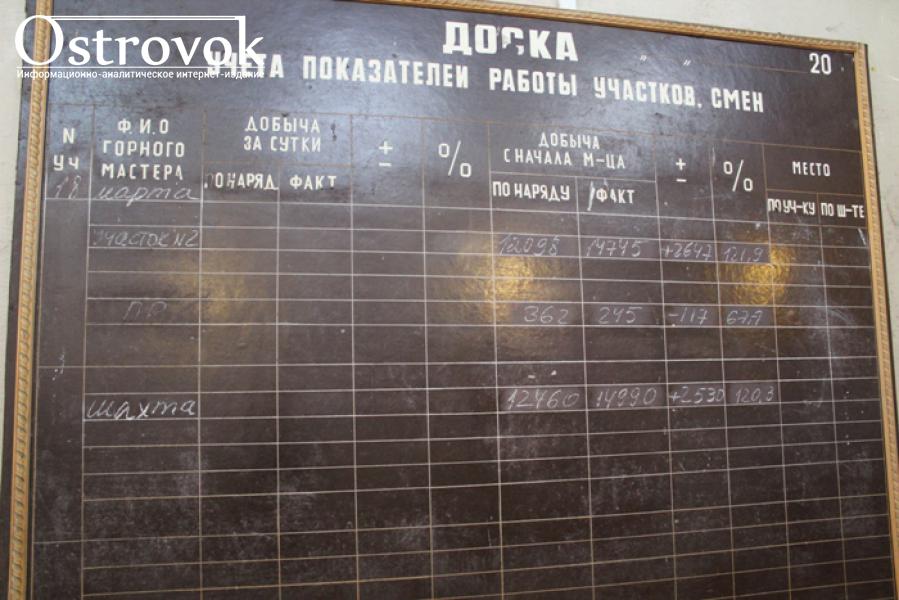 Ostrovok
Информационно-аналитическое интернет-издание
ДОСКА " " 20
УЧЕТА ПОКАЗАТЕЛЕЙ РАБОТЫ УЧАСТКОВ, СМЕН
N УЧ
Ф.И.О ГОРНОГО МАСТЕРА
ДОБЫЧА ЗА СУТКИ
ПО НАРЯД ФАКТ
+ -
%
ДОБЫЧА С НАЧАЛА М-ЦА
ПО НАРЯДУ ФАКТ
+ -
%
МЕСТО
ПО УЧ-КУ ПО Ш-ТЕ
18 марта
Участок №2 12098 14745 +2647 121,9
ПР 362 245 -117 67,7
Шахта 12460 14990 +2530 120,3